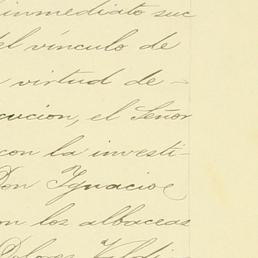 inmediato suc
del vínculo de
virtud de-
cucion, el Señor
con la investi-
Don Ignacio
on los albaceas
Dolores